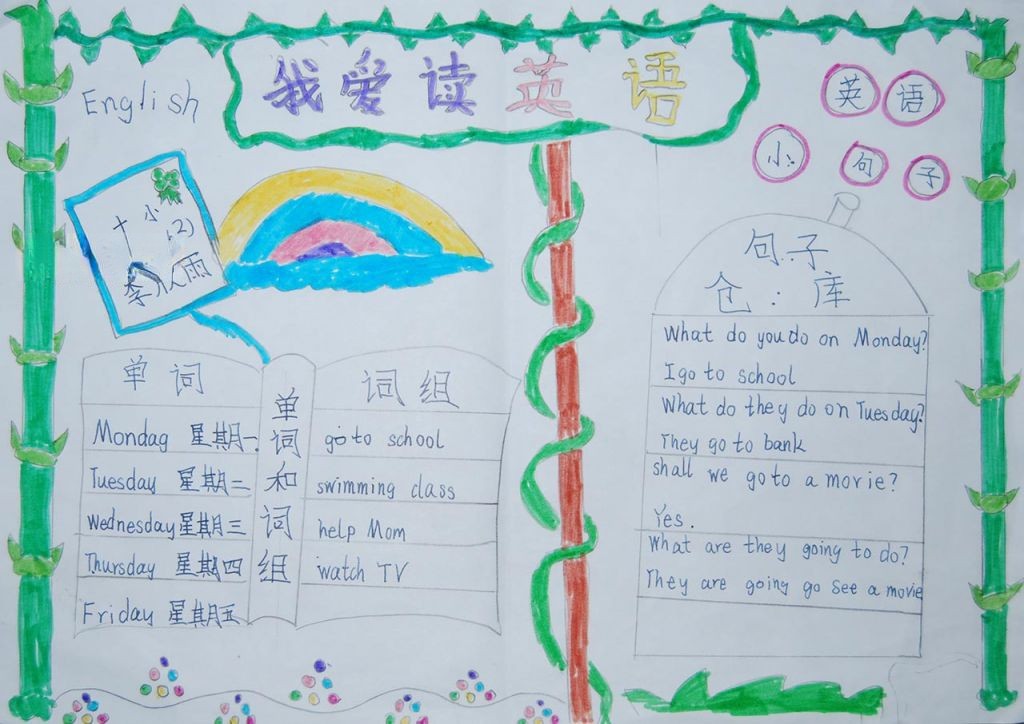 我爱读英语
English
十小
(2)
李从雨
单词
Mondag 星期一.
Tuesday 星期二
Wednesday 星期三
Thursday 星期四
Friday 星期五
单词和词组
词组
go to school
swimming class
help Mom
watch TV
英语
小句子
句子
仓:库
What do you do on Monday?
I go to school
What do they do on Tuesday?
They go to bank
shall we go to a movie?
Yes.
What are they going to do?
They are going go see a movie